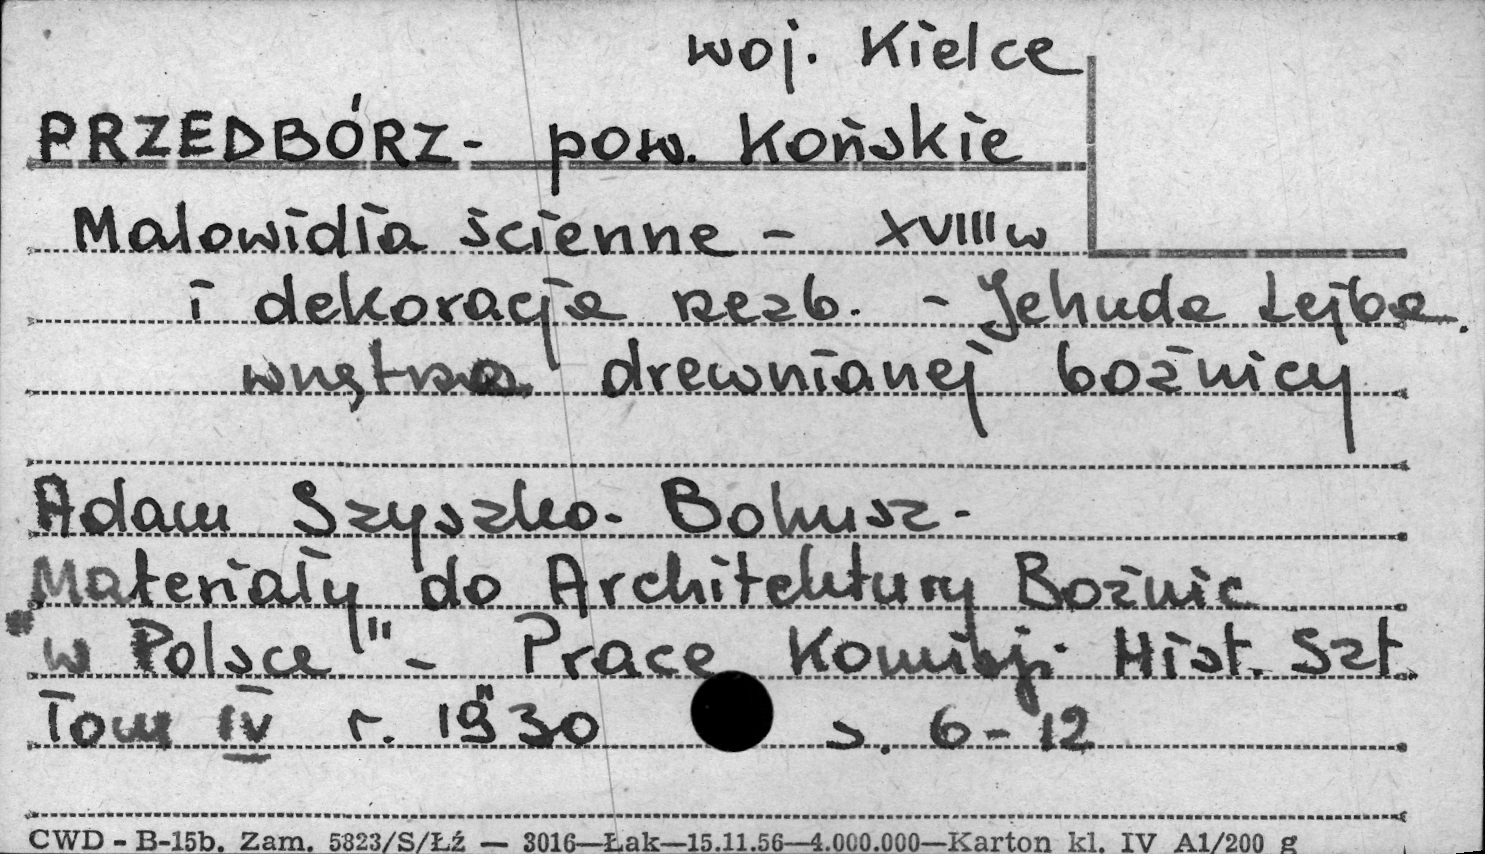 woj. Kielce
PRZEDBÓRZ - pow. Końskie
Malowidła ścienne - XVIII w
i dekoracja rzeźb. - Jehuda Lejba.
wnętrza drewnianej bożnicy
Adam Szyszko-Bohusz -
"Materiały do Architektury Bożnic
w Polsce" - Prace Komisji Hist. Szt.
Tom IV r. 1930 s. 6-12
CWD - B-15b. Zam. 5823/S/Łź — 3016—Łak—15.11.56—4.000.000—Karton kl. IV A1/200 g